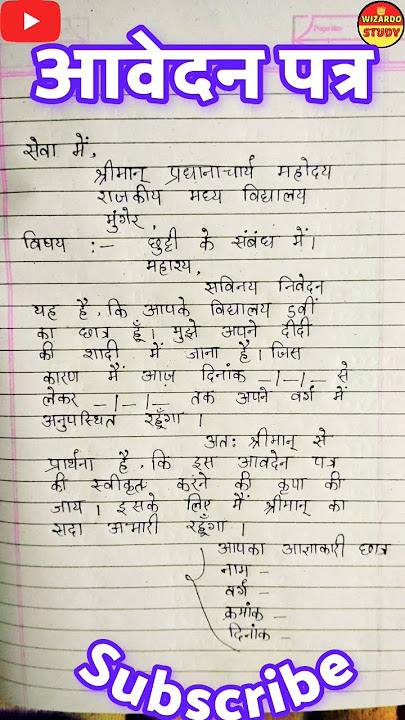 WIZARDO
STUDY
Page No.
आवेदन पत्र
सेवा में,
श्रीमान् प्रधानाचार्य महोदय
राजकीय मध्य विद्यालय
मुंगेर,
विषय :- छुट्टी के संबंध में।
महाश्य,
सविनय निवेदन
यह है, कि आपके विद्यालय 5वीं
का छात्र हूँ। मुझे अपने दीदी
की शादी में जाना है। जिस
कारण मैं आज़ दिनांक _/_/_ से
लेकर _/_/_ तक अपने वर्ग में
अनुपस्थित रहूँगा ।
अतः श्रीमान् से
प्रार्थना है, कि इस आवदेन पत्र
की स्वीकृत करने की कृपा की
जाय। इसके लिए मैं श्रीमान् का
सदा आभारी रहूँगा ।
आपका आज्ञाकारी छात्र
नाम -
वर्ग -
क्रमांक -
दिनांक -
Subscribe